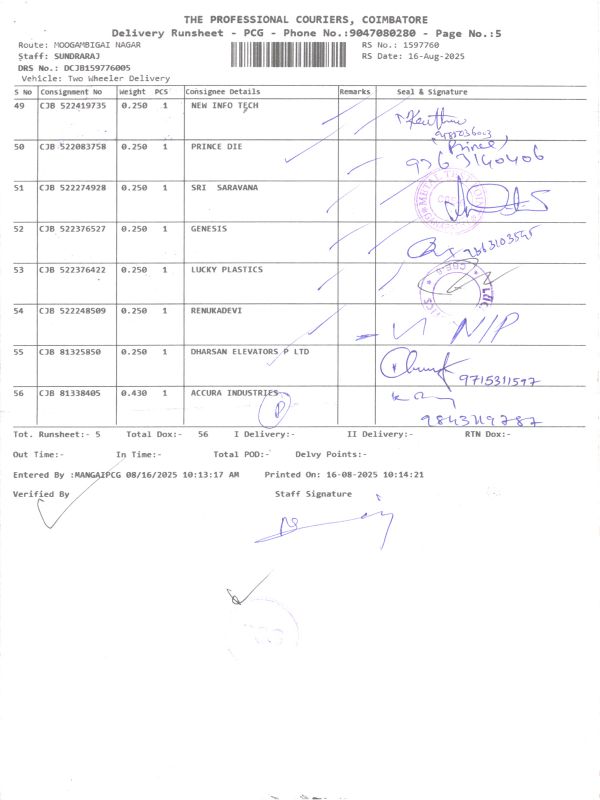 THE PROFESSIONAL COURIERS, COIMBATORE
Delivery Runsheet - PCG - Phone No.:9047080280 - Page No.:5
Route: MOOGAMBIGAI NAGAR RS No.: 1597760
Staff: SUNDRARAJ RS Date: 16-Aug-2025
DRS No.: DCJB159776005
Vehicle: Two Wheeler Delivery
S No Consignment No Weight PCS Consignee Details Remarks Seal & Signature
49 CJB 522419735 0.250 1 NEW INFO TECH
50 CJB 522083758 0.250 1 PRINCE DIE (Prince)
9363140406
51 CJB 522274928 0.250 1 SRI SARAVANA
52 CJB 522376527 0.250 1 GENESIS
53 CJB 522376422 0.250 1 LUCKY PLASTICS
54 CJB 522248509 0.250 1 RENUKADEVI N/P
55 CJB 81325850 0.250 1 DHARSAN ELEVATORS P LTD
9715311597
56 CJB 81338405 0.430 1 ACCURA INDUSTRIES
P
9843719787
Tot. Runsheet:- 5 Total Dox:- 56 I Delivery:- II Delivery:- RTN Dox:-
Out Time:- In Time:- Total POD:- Delvy Points:-
Entered By :MANGAIPCG 08/16/2025 10:13:17 AM Printed On: 16-08-2025 10:14:21
Verified By Staff Signature